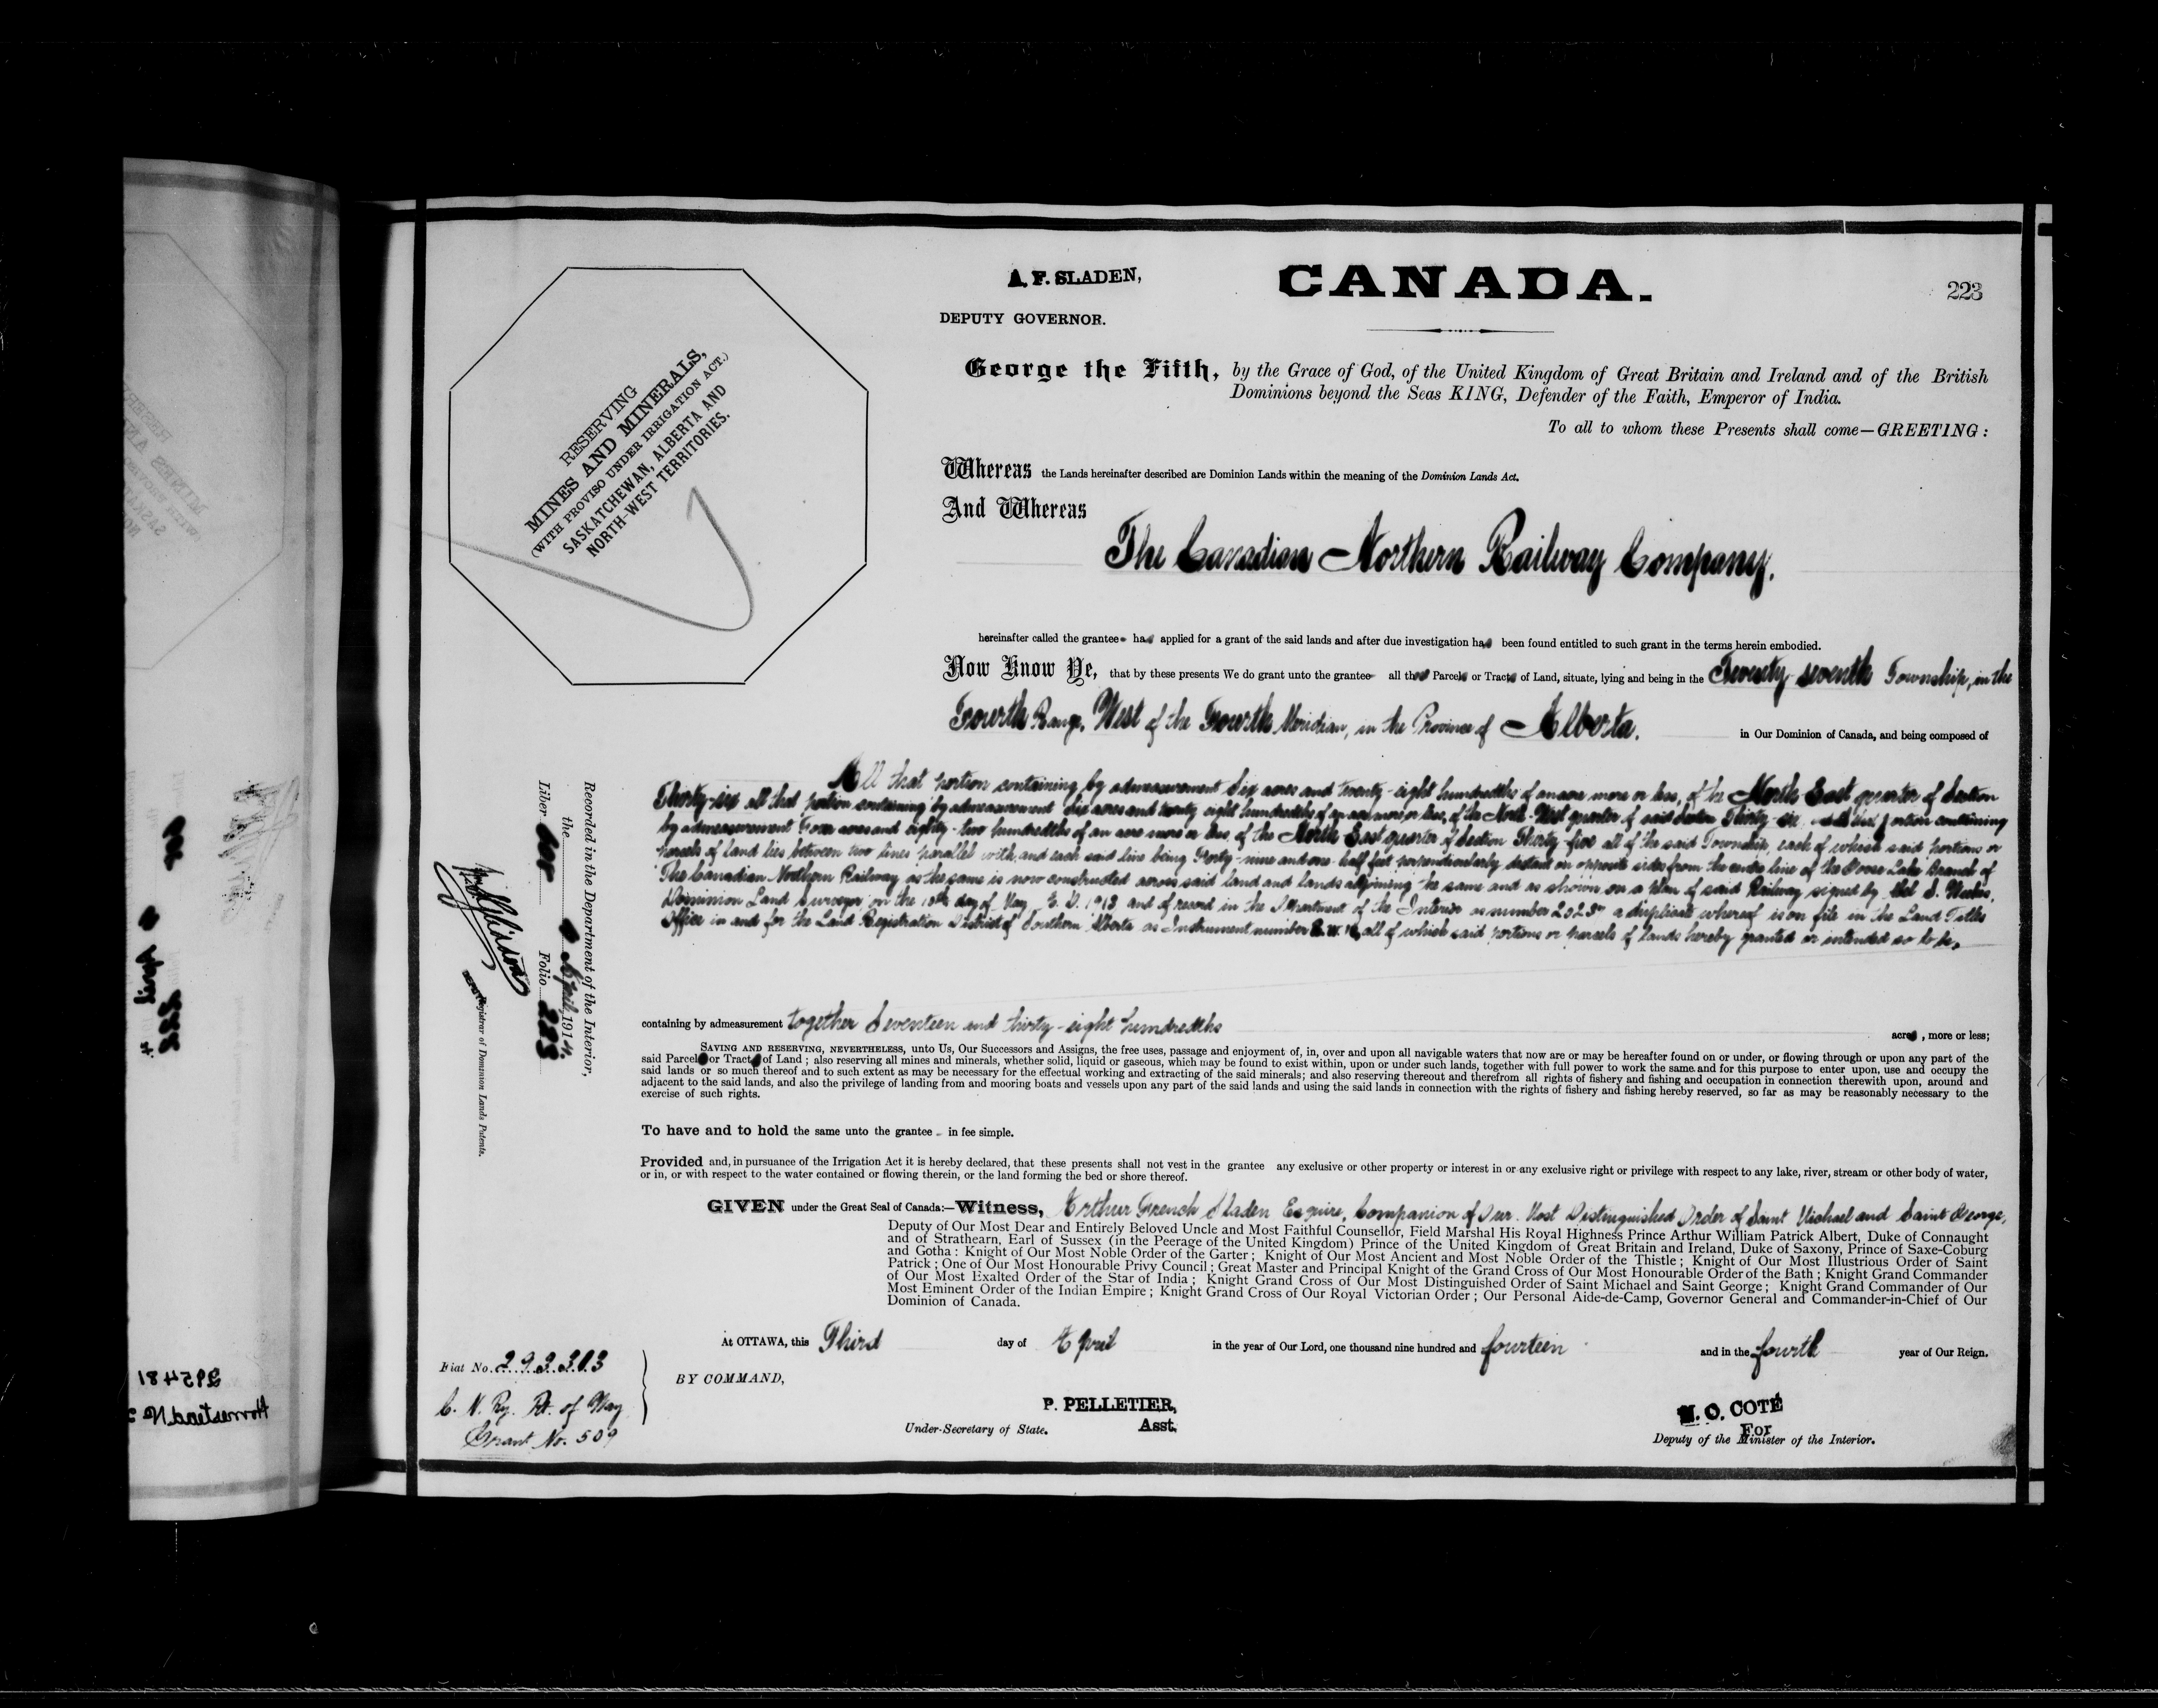 A. F. SLADEN,
CANADA.
223
DEPUTY GOVERNOR.
George the Fifth, by the Grace of God, of the United Kingdom of Great Britain and Ireland and of the British
Dominions beyond the Seas KING, Defender of the Faith, Emperor of India.
To all to whom these Presents shall come—GREETING:
RESERVING
MINES AND MINERALS,
(WITH PROVISO UNDER IRRIGATION ACT.)
SASKATCHEWAN, ALBERTA AND
NORTH-WEST TERRITORIES.
Whereas the Lands hereinafter described are Dominion Lands within the meaning of the Dominion Lands Act.
And Whereas
The Canadian Northern Railway Company.
hereinafter called the grantee has applied for a grant of the said lands and after due investigation has been found entitled to such grant in the terms herein embodied.
Now Know Ye, that by these presents We do grant unto the grantee all those Parcels or Tracts of Land, situate, lying and being in the seventh Township, in the
Fourth Range, West of the Fourth Meridian, in the Province of Alberta. in Our Dominion of Canada, and being composed of
All that portion containing by admeasurement Six acres and twenty-eight hundredths of an acre more or less, of the North East quarter of Section
Thirty-six all that portion containing by admeasurement Six acres and twenty eight hundredths of an acre more or less, of the North West quarter of said Section Thirty-six and that portion containing
by admeasurement Four acres and eighty-two hundredths of an acre more or less, of the North East quarter of Section Thirty-five all of the said Township, each of which said portions or
parcels of land lies between two lines parallel with, and each said line being Forty-nine and one-half feet perpendicularly distant on opposite sides from the centre line of the Goose Lake Branch of
The Canadian Northern Railway as the same is now constructed across said land and lands adjoining the same and as shown on a plan of said Railway signed by S.
Dominion Land Surveyor on the day of May A. D. 1913 and of record in the Department of the Interior as number a duplicate whereof is on file in the Land Titles
Office in and for the Land Registration District of Southern Alberta as Instrument number all of which said portions or parcels of lands hereby granted or intended so to be,
containing by admeasurement together Seventeen and thirty-eight hundredths acres, more or less;
SAVING AND RESERVING, NEVERTHELESS, unto Us, Our Successors and Assigns, the free uses, passage and enjoyment of, in, over and upon all navigable waters that now are or may be hereafter found on or under, or flowing through or upon any part of the
said Parcels or Tracts of Land; also reserving all mines and minerals, whether solid, liquid or gaseous, which may be found to exist within, upon or under such lands, together with full power to work the same and for this purpose to enter upon, use and occupy the
said lands or so much thereof and to such extent as may be necessary for the effectual working and extracting of the said minerals; and also reserving thereout and therefrom all rights of fishery and fishing and occupation in connection therewith upon, around and
adjacent to the said lands, and also the privilege of landing from and mooring boats and vessels upon any part of the said lands and using the said lands in connection with the rights of fishery and fishing hereby reserved, so far as may be reasonably necessary to the
exercise of such rights.
To have and to hold the same unto the grantee in fee simple.
Provided and, in pursuance of the Irrigation Act it is hereby declared, that these presents shall not vest in the grantee any exclusive or other property or interest in or any exclusive right or privilege with respect to any lake, river, stream or other body of water,
or in, or with respect to the water contained or flowing therein, or the land forming the bed or shore thereof.
GIVEN under the Great Seal of Canada:—Witness, Arthur French Sladen Esquire, Companion of Our Most Distinguished Order of Saint Michael and Saint George,
Deputy of Our Most Dear and Entirely Beloved Uncle and Most Faithful Counsellor, Field Marshal His Royal Highness Prince Arthur William Patrick Albert, Duke of Connaught
and of Strathearn, Earl of Sussex (in the Peerage of the United Kingdom) Prince of the United Kingdom of Great Britain and Ireland, Duke of Saxony, Prince of Saxe-Coburg
and Gotha: Knight of Our Most Noble Order of the Garter; Knight of Our Most Ancient and Most Noble Order of the Thistle; Knight of Our Most Illustrious Order of Saint
Patrick; One of Our Most Honourable Privy Council; Great Master and Principal Knight of the Grand Cross of Our Most Honourable Order of the Bath; Knight Grand Commander
of Our Most Exalted Order of the Star of India; Knight Grand Cross of Our Most Distinguished Order of Saint Michael and Saint George; Knight Grand Commander of Our
Most Eminent Order of the Indian Empire; Knight Grand Cross of Our Royal Victorian Order; Our Personal Aide-de-Camp, Governor General and Commander-in-Chief of Our
Dominion of Canada.
At OTTAWA, this Third day of April in the year of Our Lord, one thousand nine hundred and fourteen and in the fourth year of Our Reign.
BY COMMAND,
P. PELLETIER,
Under-Secretary of State. Asst.
N. O. COTÉ
For
Deputy of the Minister of the Interior.
Fiat No. 293303
C. N. Ry. Rt. of Way
Grant No. 509
Recorded in the Department of the Interior,
the April, 1914.
Liber Folio 223
Registrar of Dominion Lands Patents.
April
222
295481
Homestead No